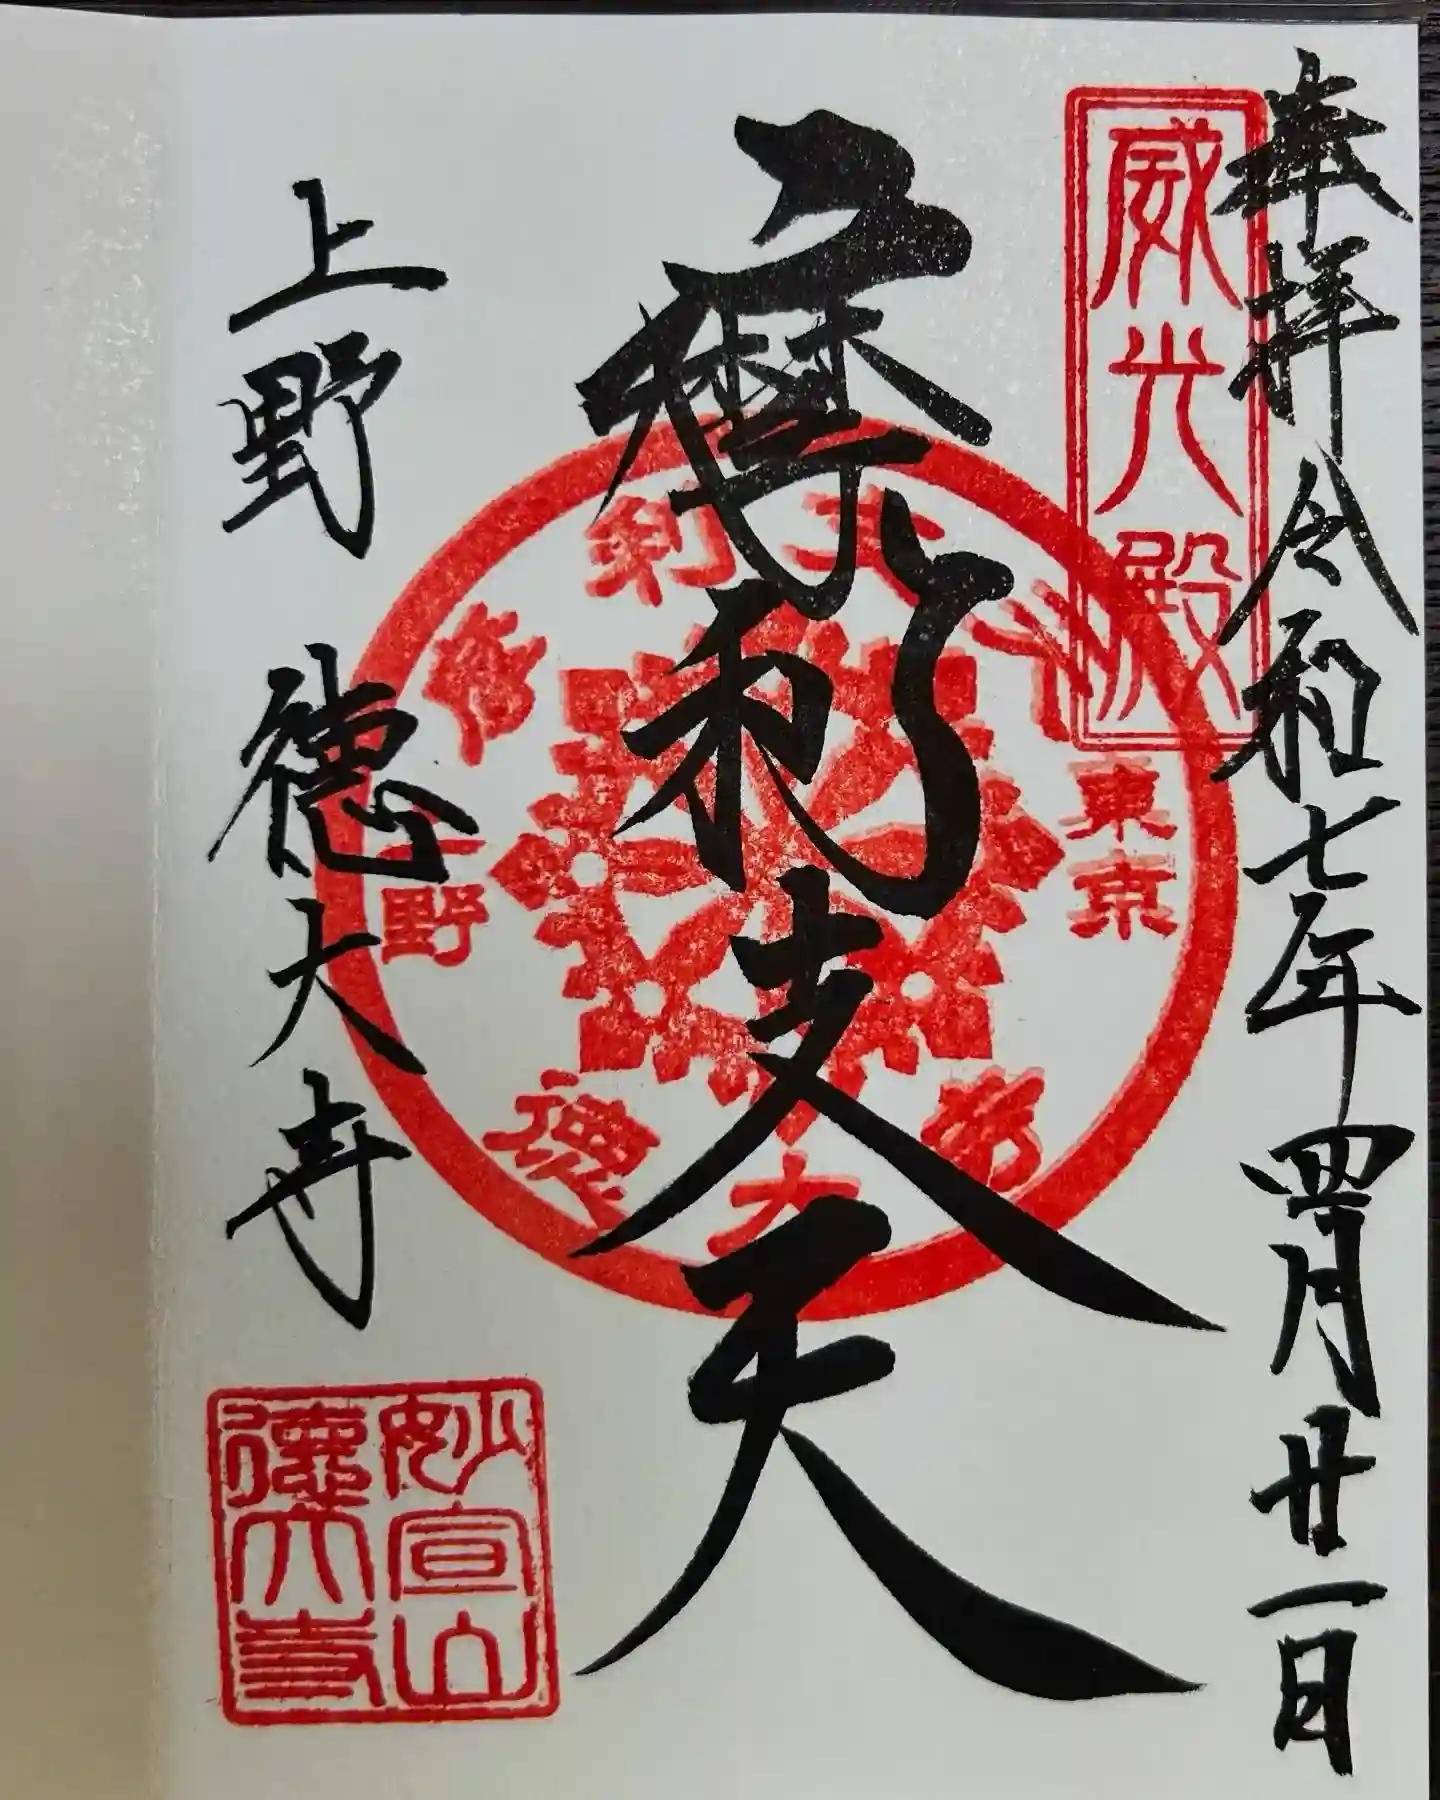 奉拝 令和七年四月廿一日
威光殿
摩利支天
東京
上野
摩利支天
徳大寺
上野 徳大寺
妙宣山
徳大寺